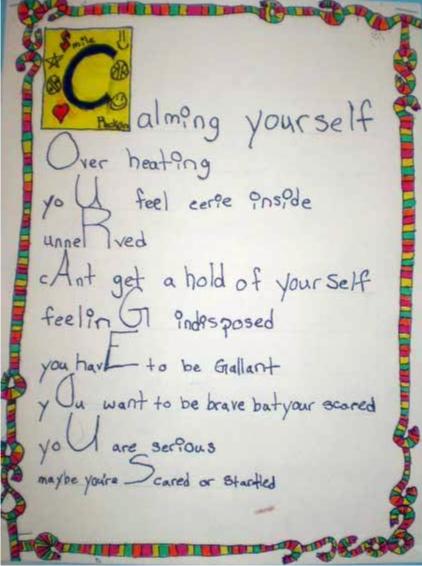 Smile
Peckon
Calming yourself
Over heating
yoU feel eerie inside
unneRved
cAnt get a hold of yourself
feelinG indisposed
you havE to be Gallant
yOu want to be brave bat your scared
yoU are serious
maybe you're Scared or startled